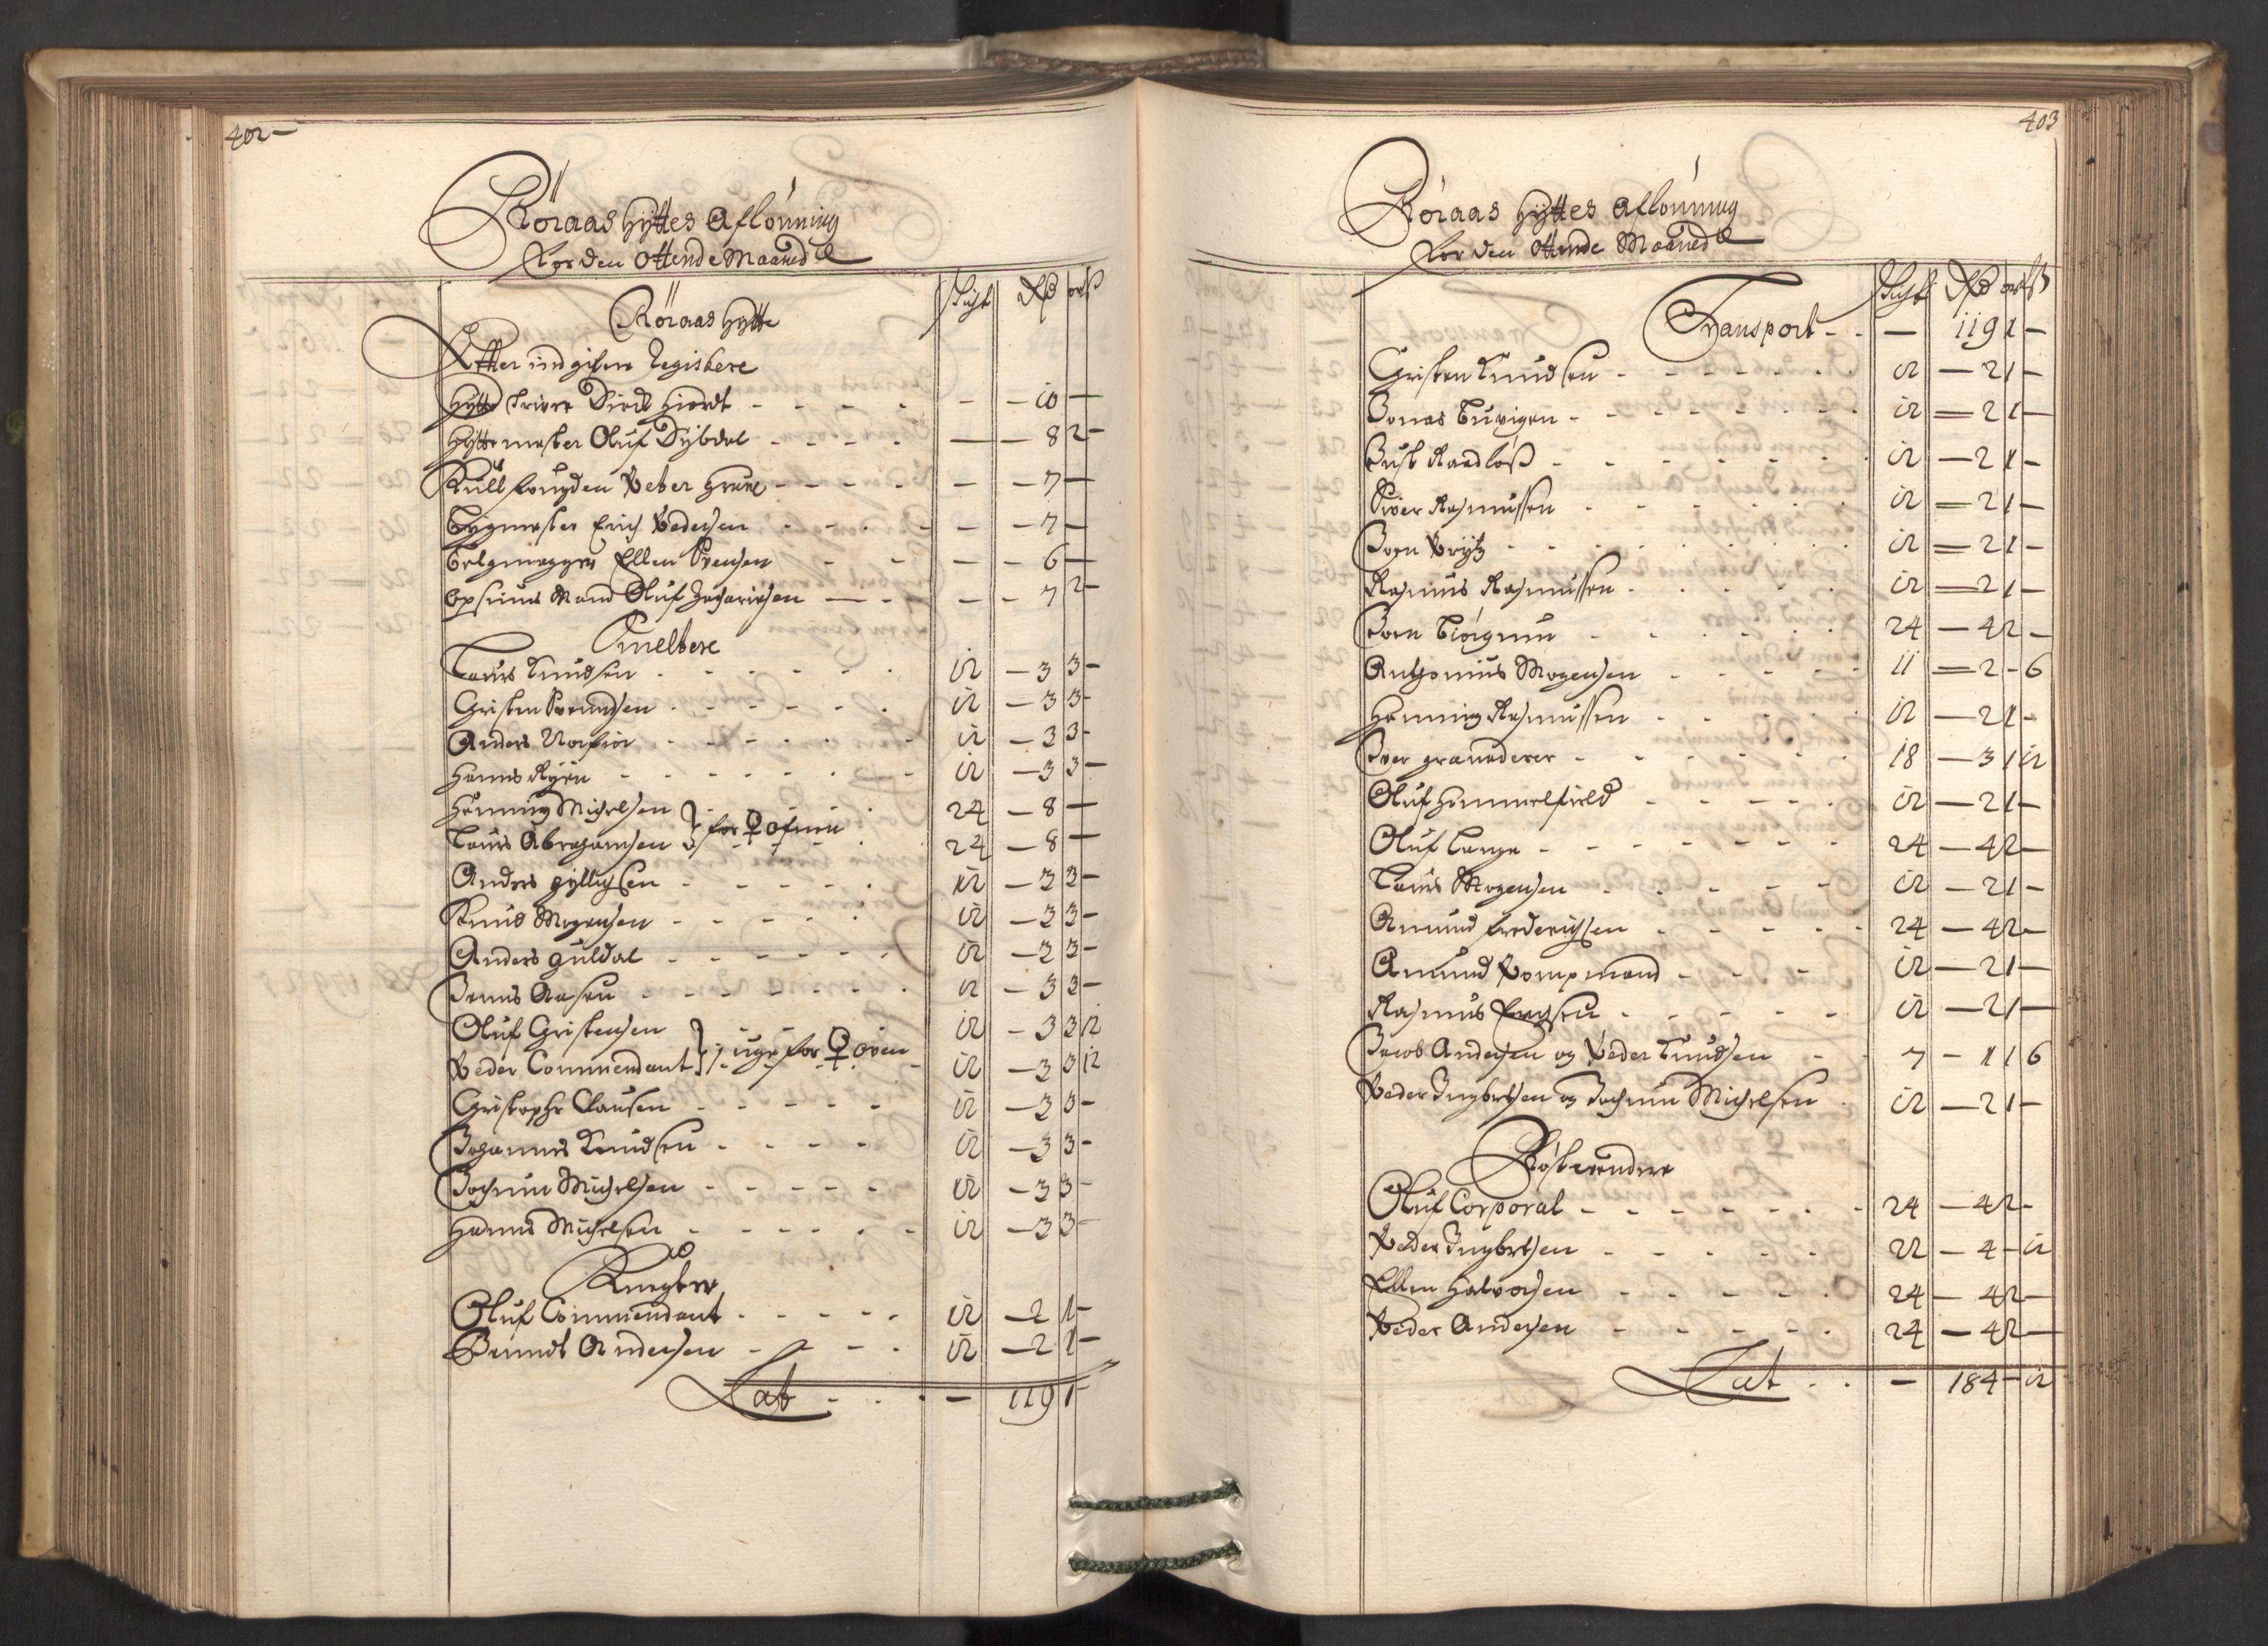 402
Röraas Hÿttes Aflönning
for den Ottende Maaned
Skigt Rd ort ß
Röraas Hÿtte
Effter indgifne Registere
Hÿtte Skriver Diedr Hiordt - - - - - - 10 -
Hÿttemester Oluf Dybdal - - - - - - 8 2 -
Kull fougden Peter Grüne - - - - - - 7 -
Bygmester Erich Pedersen - - - - - - 7 -
Belgmagger Ellen Svensen - - - - - 6 -
Opsiuns Mand Oluf Zachariasen - - - - - 7 2 -
Smeltere
Laurs Knudsen - - - - - 12 - 3 3 -
Christen Svendsen - - - - - - 12 - 3 3 -
Anders - - - - - - 12 - 3 3 -
Hanns Ryen - - - - - - - 12 - 3 3 -
Henning Michelsen } for ♀ ofnen 24 - 8 -
Laurs Abrahamsen } 24 - 8 -
Anders Gyllichsen - - - - - 12 - 3 3 -
Knud Mogensen - - - - - 12 - 3 3 -
Anders Guldal - - - - - - 12 - 3 3 -
Jenns Aasen - - - - - - - 12 - 3 3 -
Oluf Christensen } 12 - 3 3 12
Peder Commendant } 1 uge for ♀ oven 12 - 3 3 12
Christopher Clausen - - - - - 12 - 3 3 -
Johannes Knudsen - - - - 12 - 3 3 -
Jochum Michelsen - - - - - 12 - 3 3 -
Hanns Michelsen - - - - - - 12 - 3 3 -
Knegter
Oluf Commendant - - - - - 12 - 2 1 -
Berendt Andersen - - - - 12 - 2 1 -
Lat - - - - 119 1 -
403
Röraas Hÿttes Aflönning
for den Ottende Maaned
Skigt Rd ort ß
Transport - - - 119 1 -
Christen Knudsen - - - - - - 12 - 2 1 -
Jonas Turigen - - - - - - - 12 - 2 1 -
Just Raadløß - - - - - - 12 - 2 1 -
Siver Rasmussen - - - - - - 12 - 2 1 -
Joen Brÿtz - - - - - - - 12 - 2 1 -
Rasmus Rasmussen - - - - - 12 - 2 1 -
Joen Biörgmu - - - - - - 24 - 4 2 -
Anthonius Mogensen - - - - - 11 - 2 - 6
Henning Rasmussen - - - - - 12 - 2 1 -
Iver granederer - - - - - - 18 - 3 1 12
Oluf Hummelfield - - - - - 12 - 2 1 -
Oluf Lange - - - - - - - 24 - 4 2 -
Laurs Mogensen - - - - - 12 - 2 1 -
Amund Frederichsen - - - - - 24 - 4 2 -
Amund Pompmand - - - - 12 - 2 1 -
Rasmus Erichsen - - - - - 12 - 2 1 -
Jacob Andersen og Peder Knudsen - - 7 - 1 1 6
Peder Ingbretsen og Jochum Michelsen 12 - 2 1 -
Röstevendere
Oluf Corporal - - - - - - - 24 - 4 2 -
Peder Ingbretsen - - - - - 22 - 4 - 12
Ellen Halvorsen - - - - - - 24 - 4 2 -
Peder Andersen - - - - - 24 - 4 2 -
Lat - - - 184 - 12